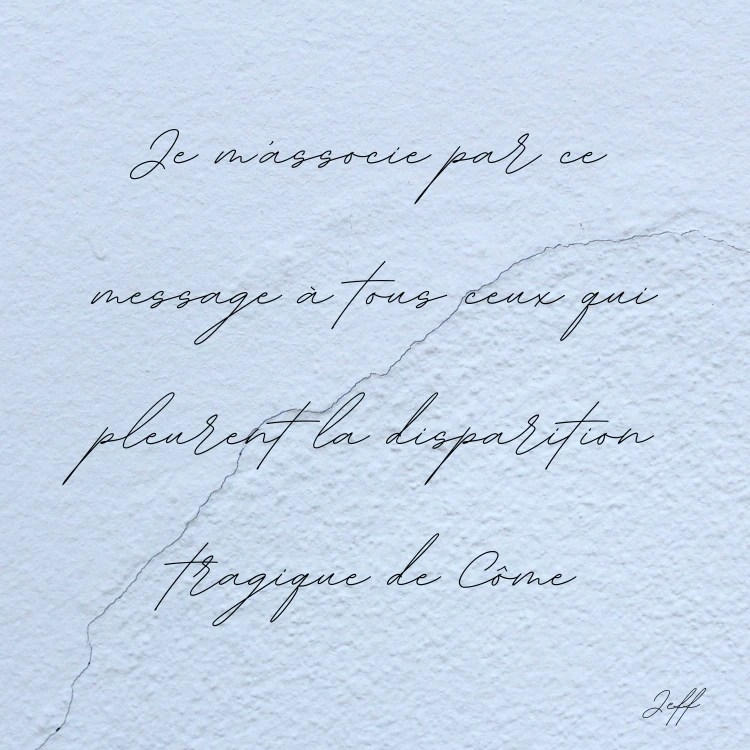 Je m'associe par ce
message à tous ceux qui
pleurent la disparition
tragique de Côme
Jeff